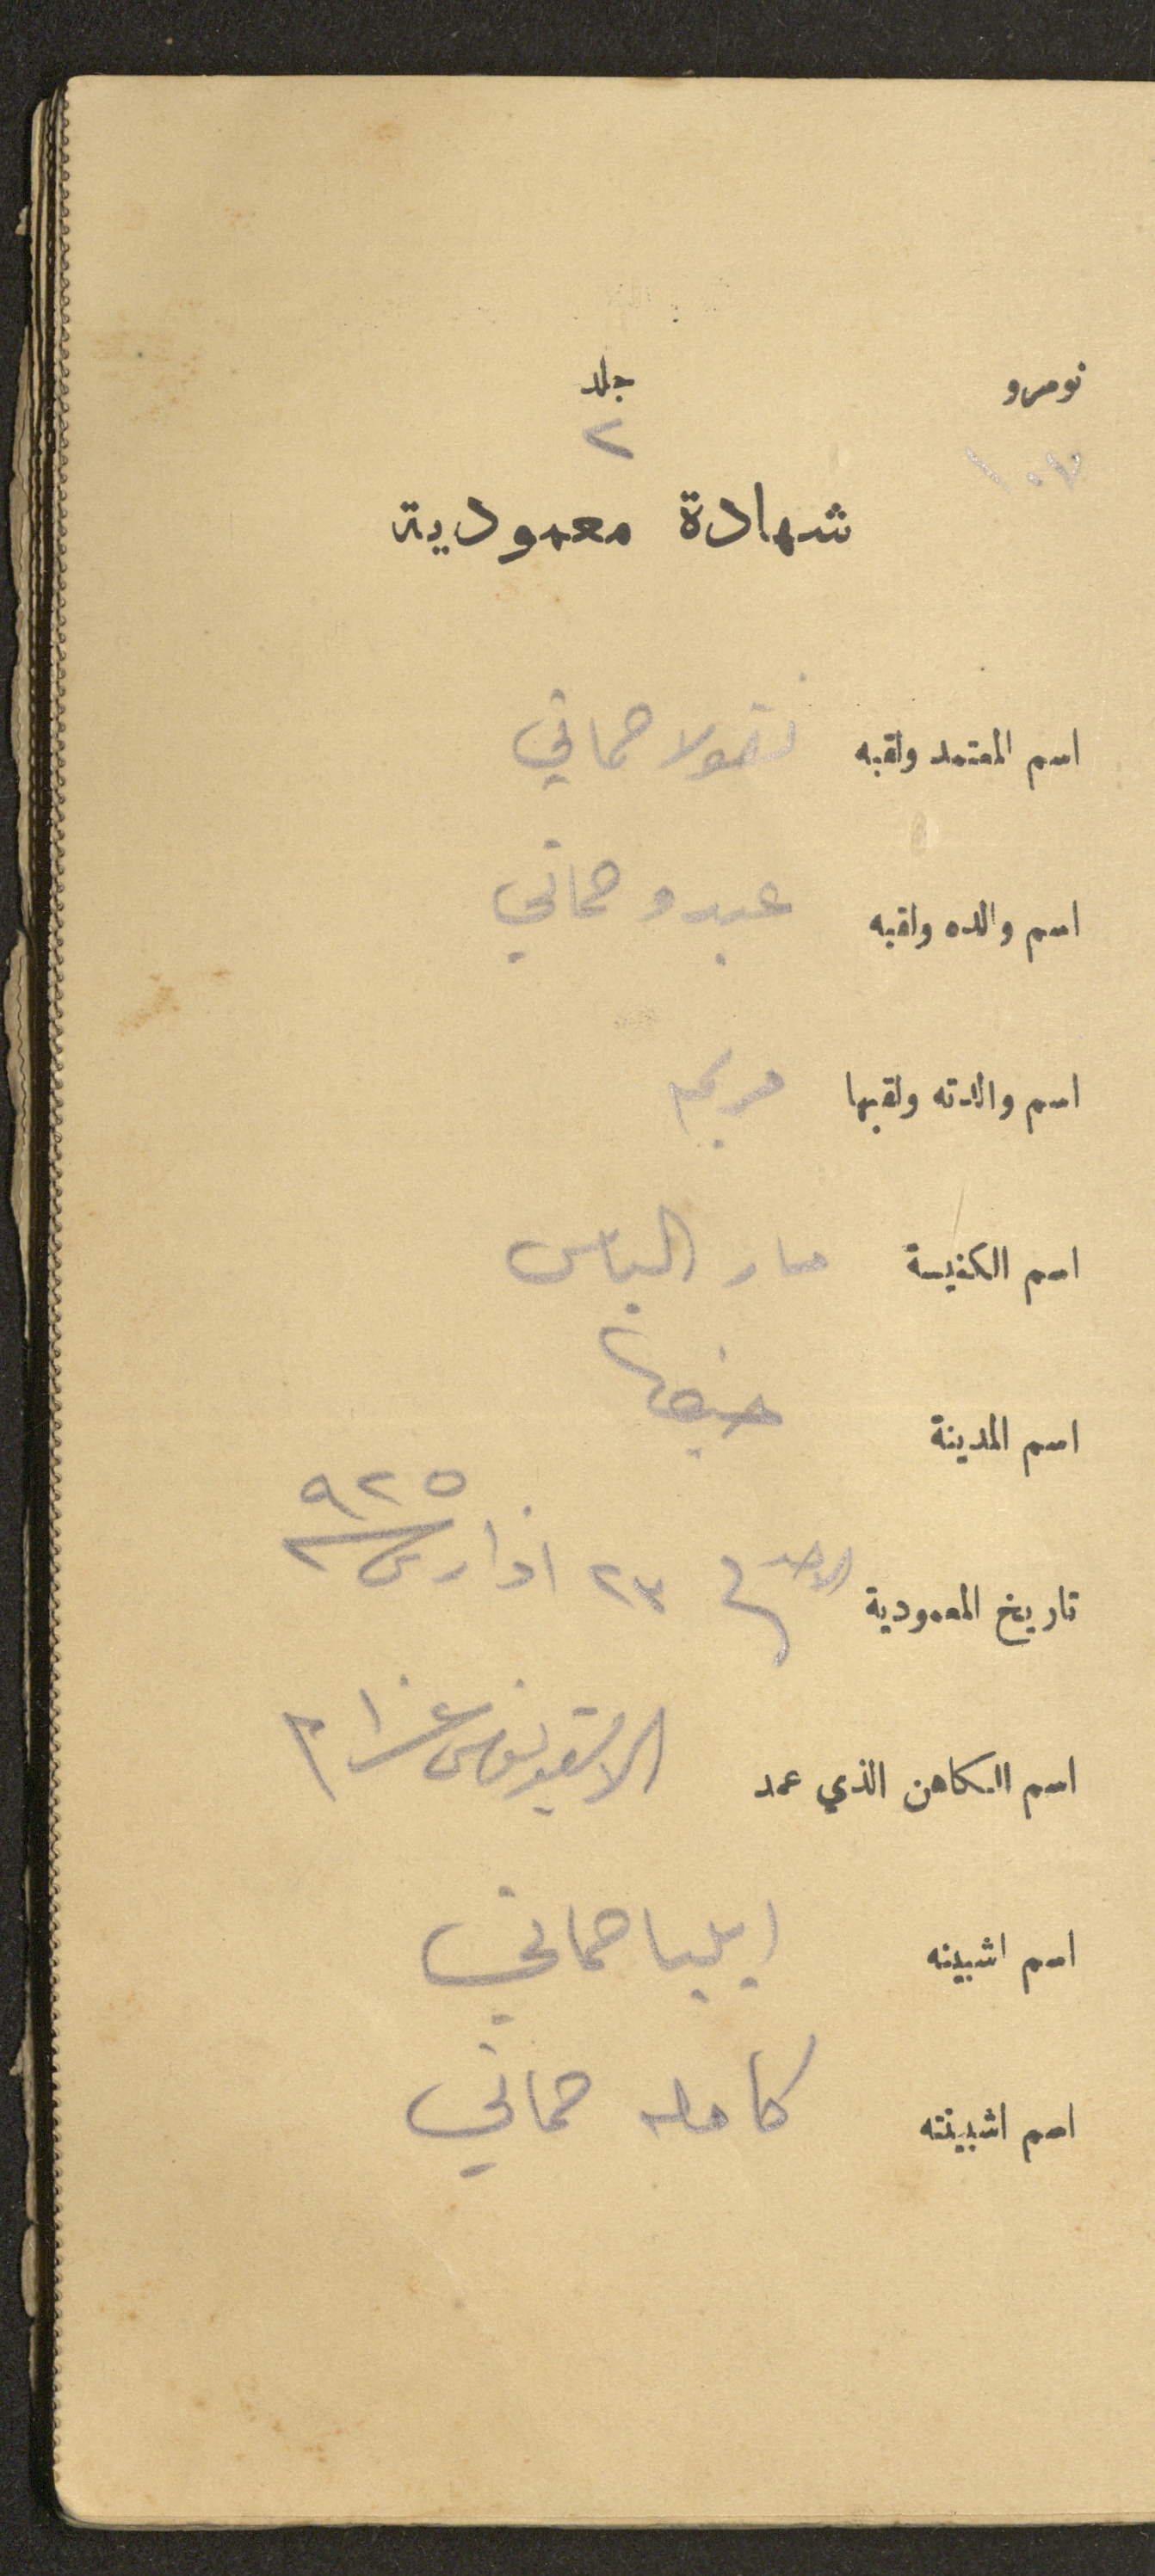 نومرو جلد
١٠٧ ٢
شهادة معمودية
اسم المعتمد ولقبه نقولا حماتي
اسم والده ولقبه عبدو حماتي
اسم والدته ولقبها مريم
اسم الكنيسة مار الياس
اسم المدينة حيفا
تاريخ المعمودية الاحد في ٢٣ اذار س ٩٢٥
اسم الكاهن الذي عمد
اسم اشبينه ايليا حماتي
اسم اشبينته كامله حماتي